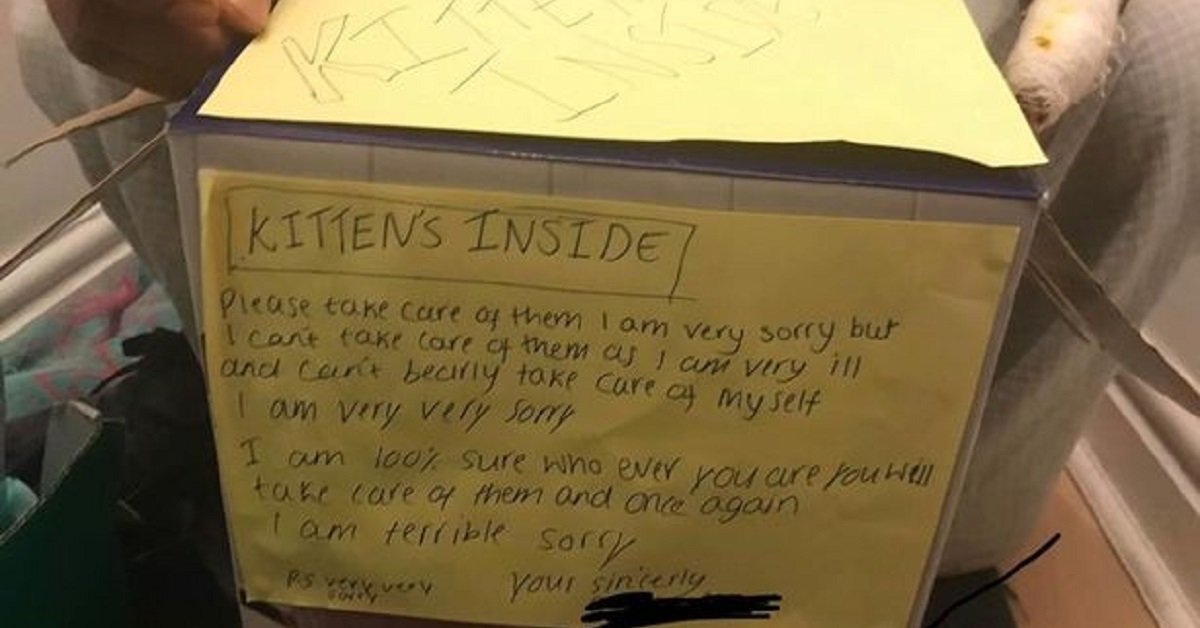 KITTEN
INSIDE
KITTEN'S INSIDE
Please take care of them I am very sorry but
I can't take care of them as I am very ill
and can't bearly take care of myself
I am very very sorry
I am 100% sure who ever you are you will
take care of them and once again
I am terrible sorry
P.S very very
sorry
your sincerly